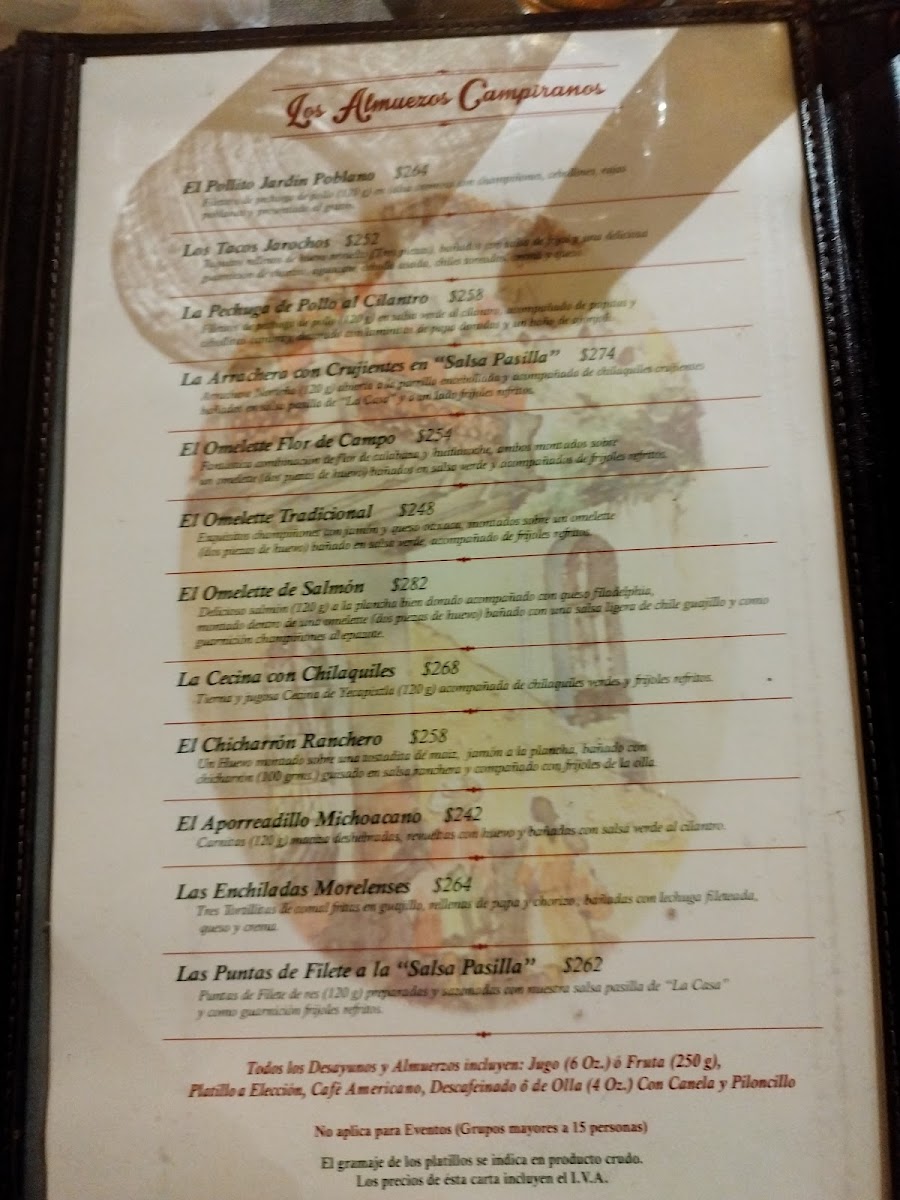 Los Almuezos Campiranos
El Pollito Jardín Poblano $264
Filetitos de pechuga de pollo (120 g) en salsa cremosa con champiñones, cebollines, rajas
poblanas y presentado al gratín.
Los Tacos Jarochos $252
Taquitos rellenos de huevo revuelto (Tres piezas), bañados con salsa de frijol y una deliciosa
guarnición de chorizo, aguacate, cebolla asada, chiles toreados, crema y queso.
La Pechuga de Pollo al Cilantro $258
Filetitos de pechuga de pollo (120 g) en salsa verde al cilantro, acompañado de papitas y
cebollitas cambray, decorado con laminitas de papa doradas y un baño de ajonjolí.
La Arrachera con Crujientes en "Salsa Pasilla" $274
Arrachera Norteña (120 g) abierta a la parrilla encebollada y acompañado de chilaquiles crujientes
bañados en salsa pasilla de "La Casa" y a un lado frijoles refritos.
El Omelette Flor de Campo $254
Fantástica combinación de flor de calabaza y huitlacoche, ambos montados sobre
un omelette (dos piezas de huevo) bañados en salsa verde y acompañados de frijoles refritos.
El Omelette Tradicional $248
Exquisitos champiñones con jamón y queso oaxaca, montados sobre un omelette
(dos piezas de huevo) bañado en salsa verde, acompañado de frijoles refritos.
El Omelette de Salmón $282
Delicioso salmón (120 g) a la plancha bien dorado acompañado con queso filadelphia,
montado dentro de una omelette (dos piezas de huevo) bañado con una salsa ligera de chile guajillo y como
guarnición champiñones al epazote.
La Cecina con Chilaquiles $268
Tierna y jugosa Cecina de Yecapixtla (120 g) acompañada de chilaquiles verdes y frijoles refritos.
El Chicharrón Ranchero $258
Un Huevo montado sobre una tostadita de maíz, jamón a la plancha, bañado con
chicharrón (100 grms.) guisado en salsa ranchera y compañado con frijoles de la olla.
El Aporreadillo Michoacano $242
Carnitas (120 g) maciza deshebradas, revueltas con huevo y bañadas con salsa verde al cilantro.
Las Enchiladas Morelenses $264
Tres Tortillitas de comal fritas en guajillo, rellenas de papa y chorizo; bañadas con lechuga fileteada,
queso y crema.
Las Puntas de Filete a la "Salsa Pasilla" $262
Puntas de Filete de res (120 g) preparadas y sazonadas con nuestra salsa pasilla de "La Casa"
y como guarnición frijoles refritos.
Todos los Desayunos y Almuerzos incluyen: Jugo (6 Oz.) ó Fruta (250 g),
Platillo a Elección, Café Americano, Descafeinado ó de Olla (4 Oz.) Con Canela y Piloncillo
No aplica para Eventos (Grupos mayores a 15 personas)
El gramaje de los platillos se indica en producto crudo.
Los precios de ésta carta incluyen el I.V.A.